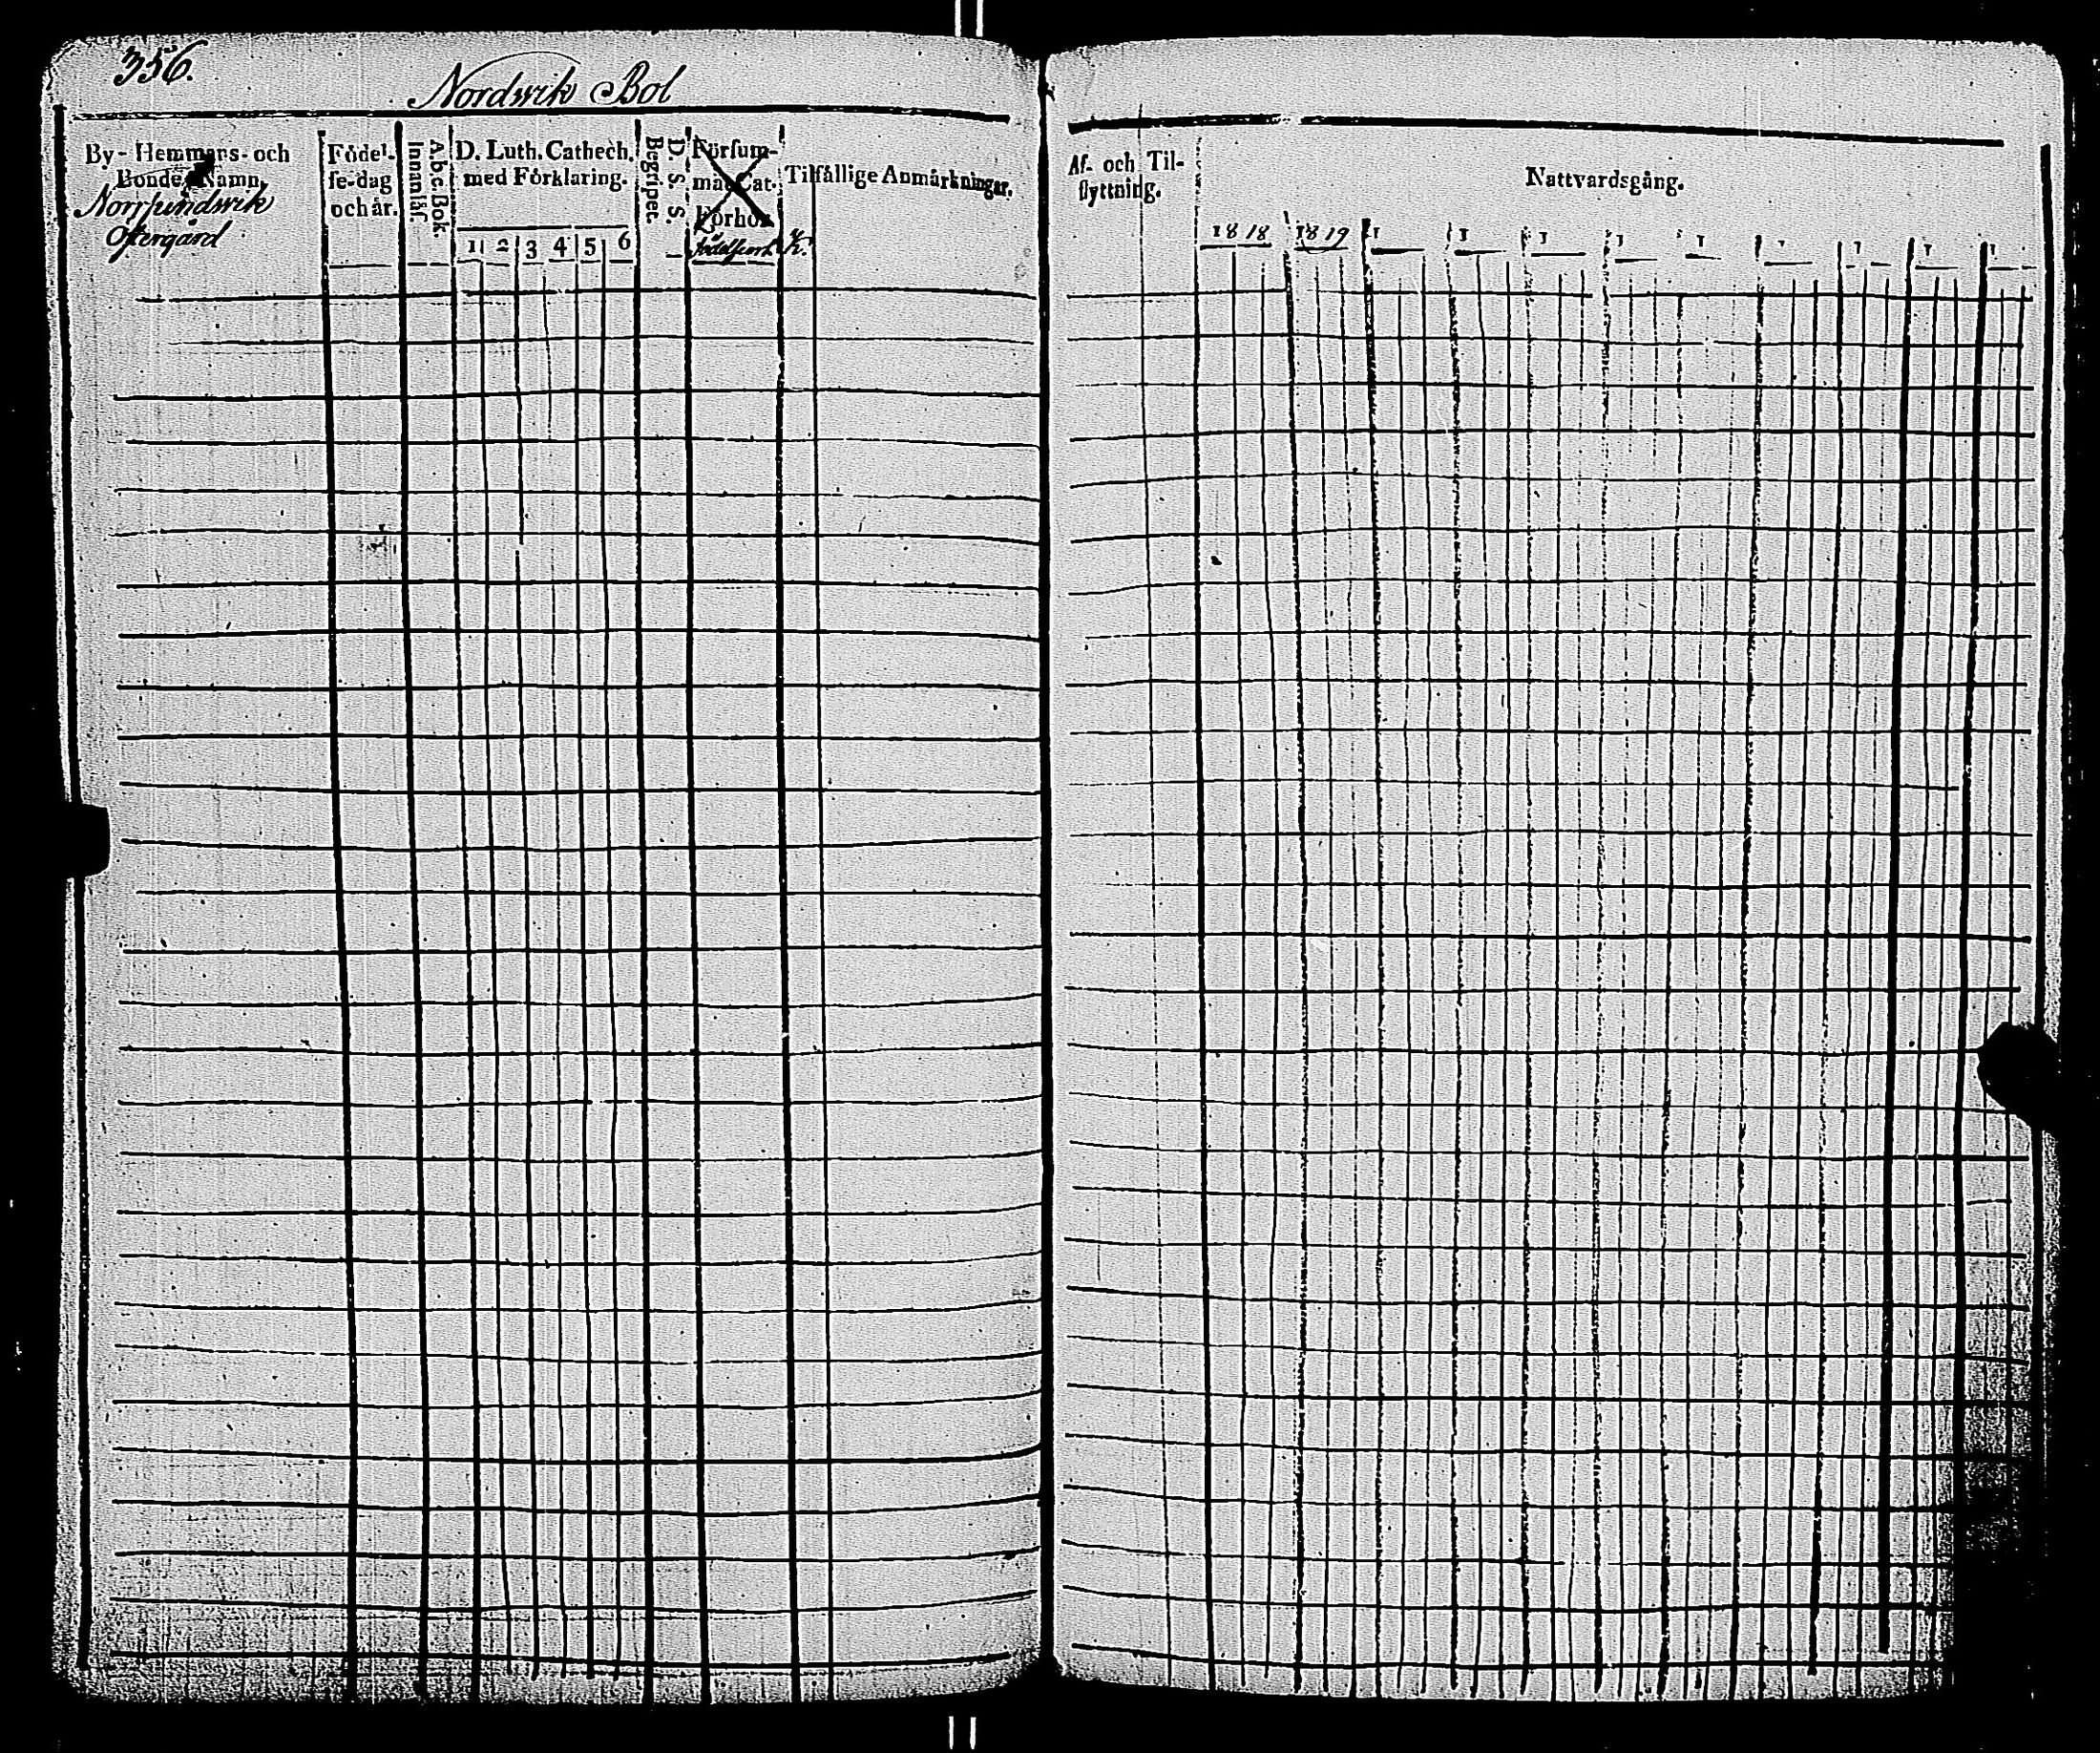 356.
Nordwik Bol
By- Hemmans- och
Bonde-Namn.
Norrsundswik
Östergård
Födel-
se-dag
och år.
Innanläs.
A.b.c.Bok.
D. Luth. Cathech.
med Förklaring.
1 2 3 4 5 6
Begripet.
D. S. S.
Försum-
mat Cat.
Förhör
födelseort
K.
Tilfällige Anmärkningar.
Af- och Til-
flyttning.
Nattvardsgång.
1818 1819 1 1 1 1 1 1 1 1 1